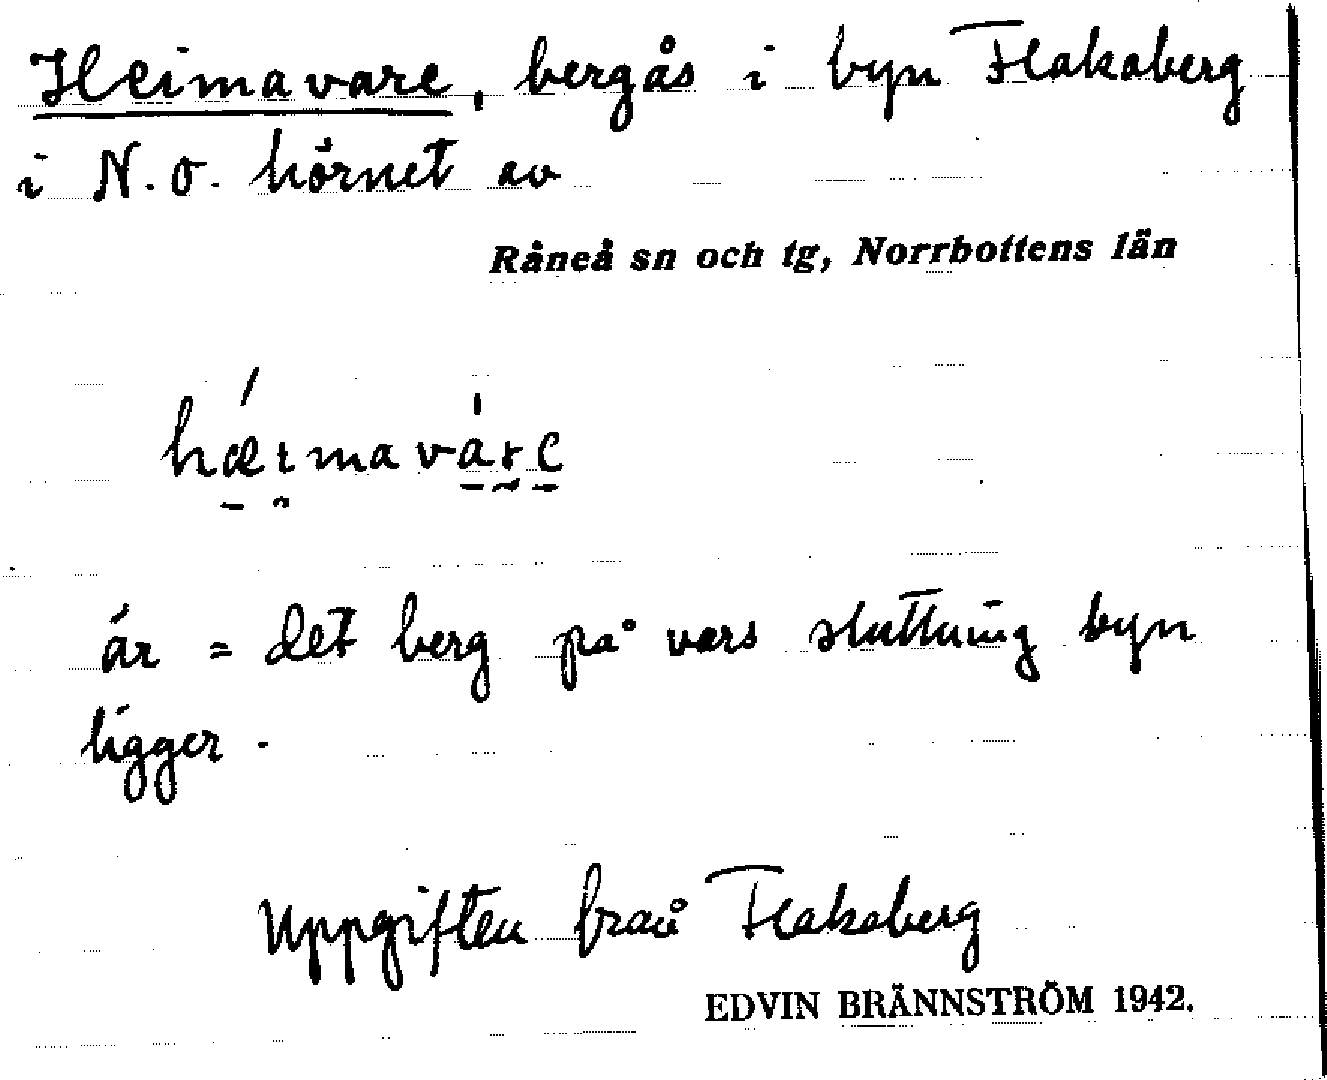 Heimavare, bergås i byn Flakaberg
i N.O. hörnet av
Råneå sn och tg, Norrbottens län
hæimavárɛ
är = det berg på vars sluttning byn
ligger.
Uppgiften från Flakaberg
EDVIN BRÄNNSTRÖM 1942.